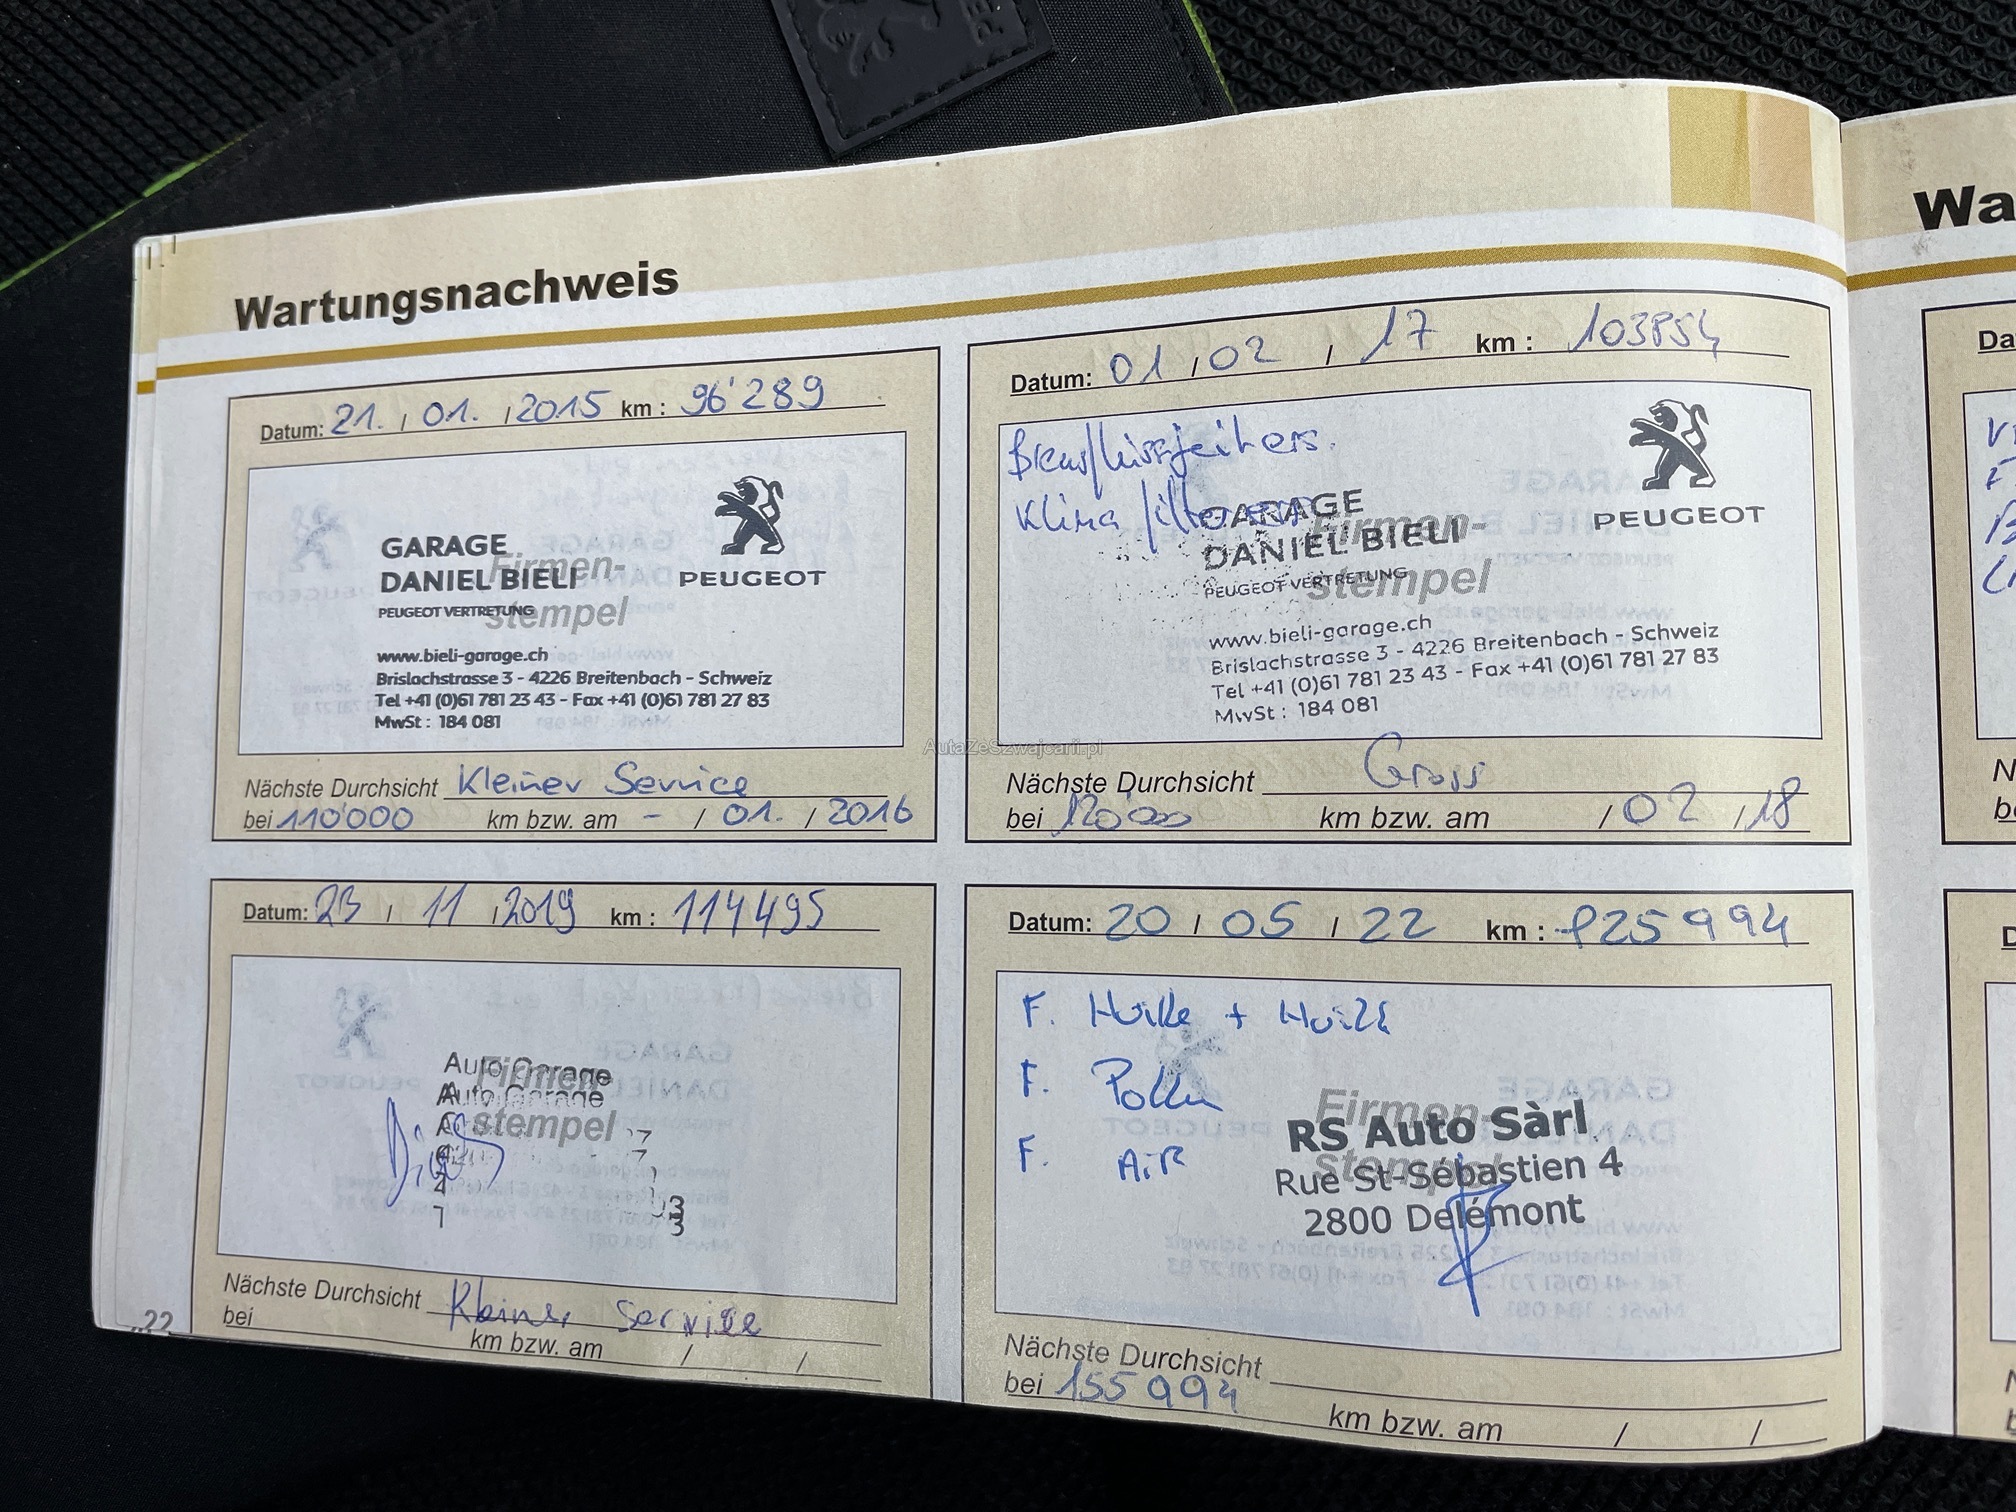 Wartungsnachweis
Datum: 21. / 01. / 2015 km : 96'289
GARAGE
DANIEL BIELI
PEUGEOT VERTRETUNG
Firmen-
stempel
PEUGEOT
www.bieli-garage.ch
Brislachstrasse 3 - 4226 Breitenbach - Schweiz
Tel +41 (0)61 781 23 43 - Fax +41 (0)61 781 27 83
MwSt : 184 081
Nächste Durchsicht Kleiner Service
bei 110'000 km bzw. am - / 01. / 2016
Datum: 01 / 02 / 17 km : 103854
Klimafilter
GARAGE
DANIEL BIELI
PEUGEOT VERTRETUNG
Firmen-
stempel
PEUGEOT
www.bieli-garage.ch
Brislachstrasse 3 - 4226 Breitenbach - Schweiz
Tel +41 (0)61 781 23 43 - Fax +41 (0)61 781 27 83
MwSt : 184 081
Nächste Durchsicht Gross
bei 120'000 km bzw. am / 02 / 18
AutaZeSzwajcarii.pl
Datum: 23 / 11 / 2019 km : 114495
Auto Garage
Auto Garage
Firmen-
stempel
Nächste Durchsicht Kleiner Service
bei km bzw. am / /
Datum: 20 / 05 / 22 km : 125994
F. Huile + Huile
F. Pollen
F. AiR
Firmen-
stempel
RS Auto Sàrl
Rue St-Sébastien 4
2800 Delémont
Nächste Durchsicht
bei 155994 km bzw. am / /
22
Wa